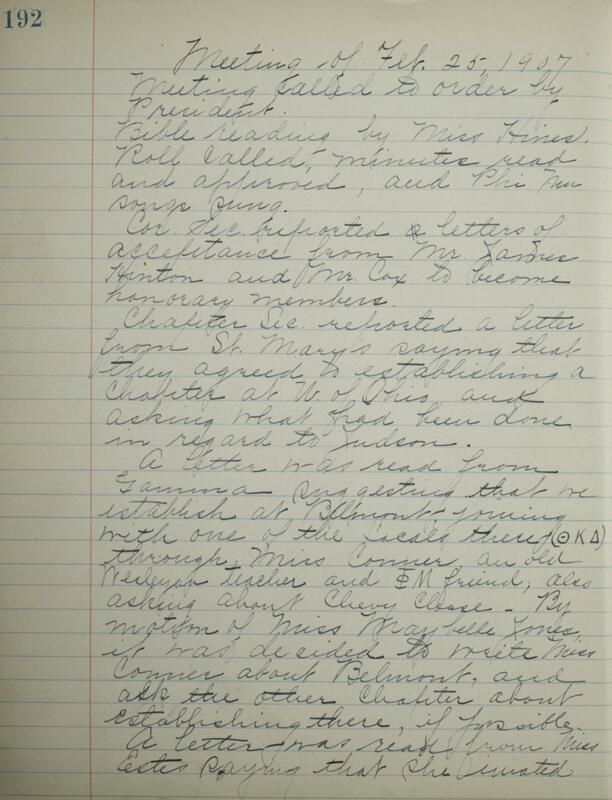 192
Meeting of Feb. 25, 1907
Meeting called to order by
President.
Bible reading by Miss Hines.
Roll called, minutes read
and approved, and Phi Mu
songs sung.
Cor. Sec. reported letters of
acceptance from Mr. James
Hinton and Mr. Cox to become
honorary members.
Chapter Sec. reported a letter
from St. Mary's saying that
they agreed to establishing a
Chapter at U. of Ohio, and
asking what had been done
in regard to Judson.
A letter was read from
Gamma suggesting that we
establish at Belmont, joining
with one of the locals there (ΘΚΔ)
through Miss Conner, an old
Wesleyan teacher and ΦM friend; also
asking about Chevy Chase - By
motion of Miss Maybelle Jones,
it was decided to write Miss
Conner about Belmont, and
ask the other Chapter about
establishing there, if possible.
A letter was read from Miss
Estes saying that she